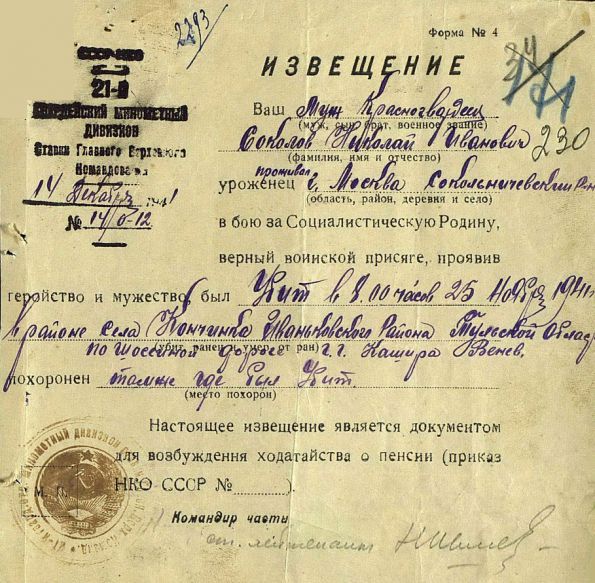 2293
Форма № 4
34
171
СССР-НКО
21-й
Гвардейский минометный
Дивизион
Ставки Главного Верховного
Командования
14 Декабря 1941
№ 14/0-12
ИЗВЕЩЕНИЕ
Ваш Муж Красногвардеец
(муж, сын, брат, военное звание)
Соколов Николай Иванович 230
(фамилия, имя и отчество)
проживал
уроженец г. Москва Сокольнический Р-н
(область, район, деревня и село)
в бою за Социалистическую Родину,
верный воинской присяге, проявив
геройство и мужество, был Убит в 8.00 часов 25 ноября 1941
в районе села Кончинка Иваньковского Района Тульской Област
по шоссейной дороге г.г. Кашира Венев.
(убит, ранен и умер от ран)
похоронен тамже где был Убит
(место похорон)
Настоящее извещение является документом
для возбуждения ходатайства о пенсии (приказ
М. П. НКО СССР № ).
Командир части
ст. лейтенант